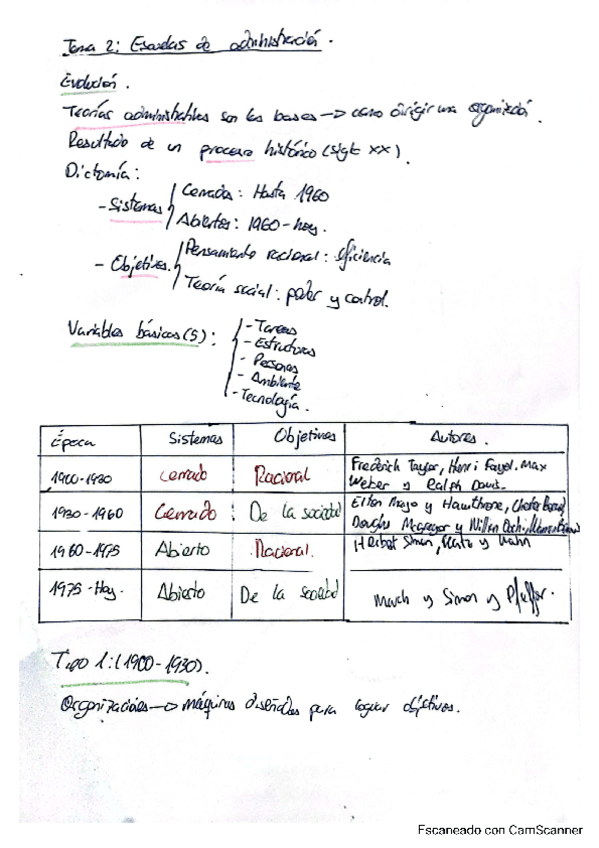 Tema 2: Escuelas de administración.
Evolución.
Teorías administrativas son las bases → como dirigir una organización.
Resultado de un proceso histórico (siglo XX).
Dictomía:
- Sistemas
Cerrados: Hasta 1960
Abiertos: 1960 - hoy.
- Objetivos.
Pensamiento racional: eficiencia
Teoría social: poder y control.
Variables básicas (5):
- Tareas
- Estructuras
- Personas
- Ambiente
- Tecnología.
Época Sistemas Objetivos Autores.
1900-1930 cerrado Racional Frederich Taylor, Henri Fayol. Max
Weber y Ralph Davis.
1930-1960 Cerrado De la sociedad Elton Mayo y Hawthrone, Chester
Douglas Mcgregor y
1960-1975 Abierto Racional. Herbert Simon, y Kahn
1975-Hoy. Abierto De la sociedad March y Simon y Pfeffer.
Tipo 1: (1900-1930).
Organizaciones → máquinas diseñadas para lograr objetivos.
Escaneado con CamScanner